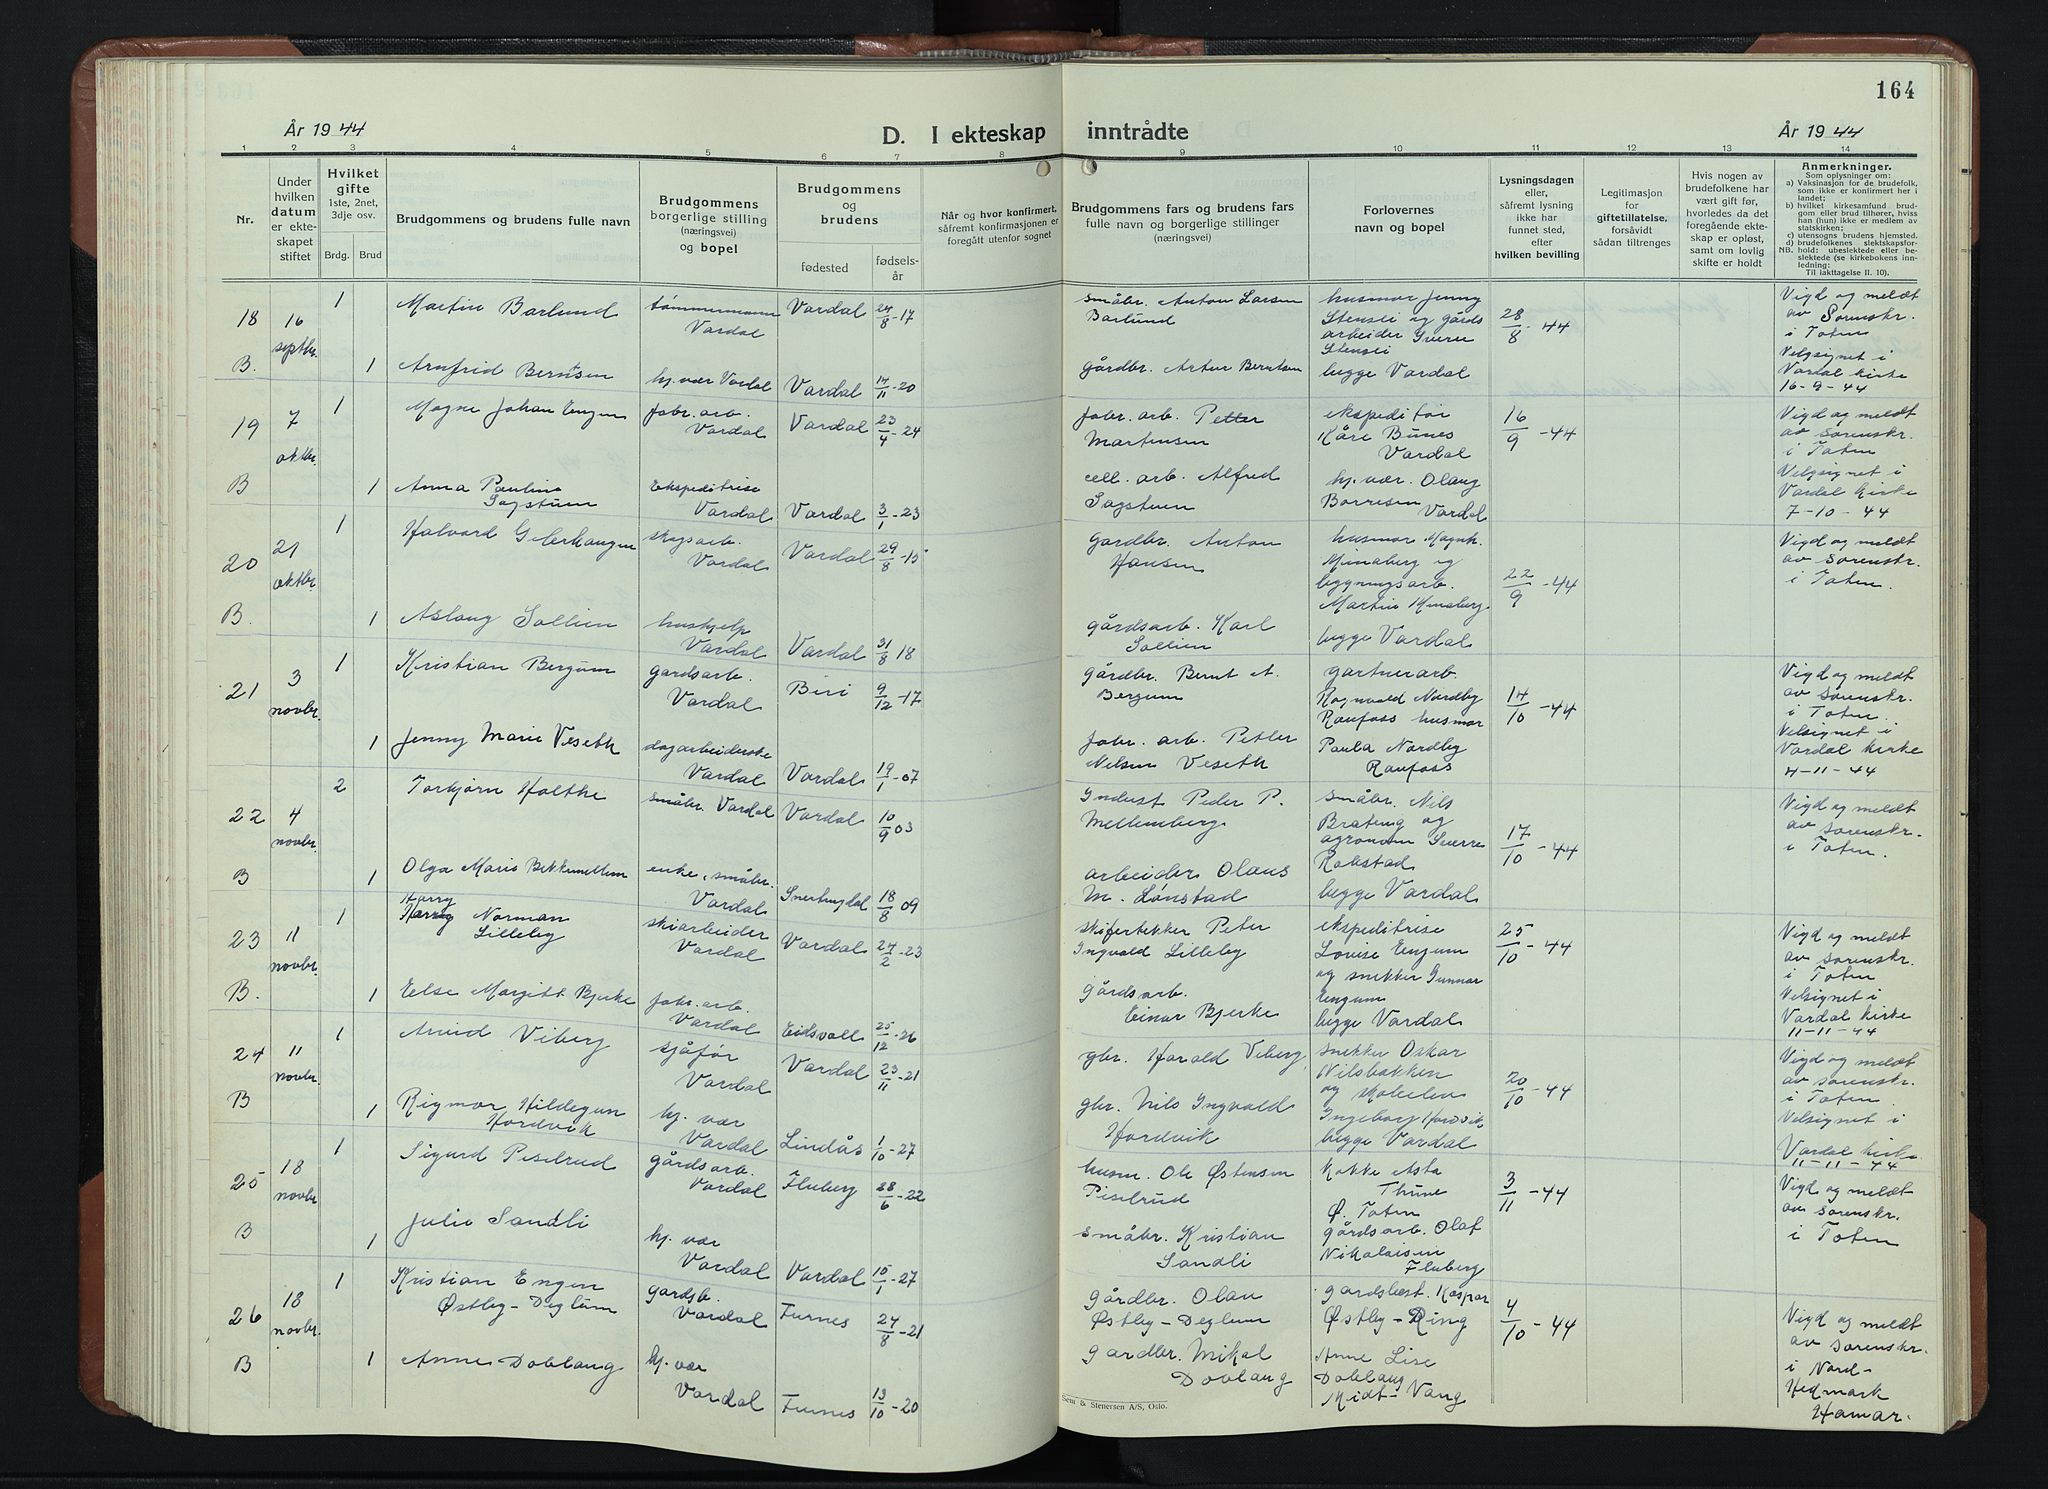 164
År 1944
D. I ekteskap inntrådte
År 1944
1 2 3 4 5 6 7 8 9 10 11 12 13 14
Nr.
Under hvilken datum er ekteskapet stiftet
Hvilket gifte 1ste, 2net, 3dje osv.
Brdg. Brud
Brudgommens og brudens fulle navn
Brudgommens borgerlige stilling (næringsvei) og bopel
Brudgommens og brudens
fødested
fødselsår
Når og hvor konfirmert, såfremt konfirmasjonen er foregått utenfor sognet
Brudgommens fars og brudens fars fulle navn og borgerlige stillinger (næringsvei)
Forlovernes navn og bopel
Lysningsdagen eller, såfremt lysning ikke har funnet sted, efter hvilken bevilling
Legitimasjon for giftetillatelse, forsåvidt sådan tiltrenges
Hvis nogen av brudefolkene har vært gift før, hvorledes da det foregående ekteskap er opløst, samt om lovlig skifte er holdt
Anmerkninger.
Som oplysninger om:
a) Vaksinasjon for de brudefolk, som ikke er konfirmert her i landet;
b) hvilket kirkesamfund brudgom eller brud tilhører, hviss han (hun) ikke er medlem av statskirken;
c) utensogns brudens hjemsted.
d) brudefolkenes slektskapsforhold: ubeslektede eller beslektede (se kirkebokens innledning:
NB.
Til iakttagelse II. 10).
18 16 septbr. 1 Martin Barlund tømmermann Vardal Vardal 24/8-17 småbr. Anton Larsen Barlund husmor Jenny Stensei og gårdsarbeider Sverre Stensei 28/8-44 Vigd og meldt av Sorenskr. i Toten
B. 1 Arnfrid Berntsen hj. vær Vardal Vardal 14/11-20 gårdbr. Artur Berntsen begge Vardal Velsignet i Vardal kirke 16-9-44
19 7 oktbr. 1 Magne Johan Engum fabr. arb. Vardal Vardal 23/4-24 fabr. arb. Petter Martinsen ekspeditør Kåre Bunes Vardal 16/9-44 Vigd og meldt av sorenskr. i Toten
B 1 Anna Pauline Sagstuen Ekspeditrise Vardal Vardal 3/1-23 cell. arb. Alfred Sagstuen hj. vær. Olaug Borresen Vardal Velsignet i Vardal kirke 7-10-44
20 21 oktbr. 1 Halvard skogsarb. Vardal Vardal 29/8-15 gardbr. Anton Hansen husmor begygningsarb. Martin 22/9-44 Vigd og meldt av Sorenskr. i Toten.
B. 1 Aslaug Sollien hushjelp Vardal Vardal 31/8 18 gårdsarb. Karl Sollien begge Vardal
21 3 novbr. 1 Kristian Bergum gardsarb. Vardal Biri 9/12-17 gårdbr. Bernt A. Bergum gartnerarb. Ragnvald Nordby Raufoss husmor 14/10-44 Vigd og meldt av sorenskr. i Toten.
1 Jenny Marie Veseth dagarbeiderske Vardal Vardal 19/1-07 fabr. arb. Petter Nilsen Veseth Paula Nordby Raufoss Velsignet i Vardal kirke 4-11-44
22 4 novbr. 2 Torbjørn Holthe småbr. Vardal Vardal 10/9 03 Indust Peder P. Mellemberg småbr. Nils Brateng og agronom Sverre Rokstad 17/10-44 Vigd og meldt av sorenskr. i Toten.
B 1 Olga Marie Bekkemellem enke, småbr. Vardal Snertingdal 18/8 09 arbeider Olaus M. Lønstad begge Vardal
23 11 novbr. 1 Harry Harry Norman Lilleby skiarbeider Vardal Vardal 24/2-23 skifertekker Peter Ingvald Lilleby ekspeditrise Lovise Engum og snekker Gunnar Engum 25/10-44 Vigd og meldt av sorenskr. i Toten
B. 1 Else Margitt Bjerke fabr. arb. Vardal Eidsvoll 25/12-26 gårdsarb. Einar Bjerke begge Vardal Velsignet i Vardal kirke 11-11-44
24 11 novbr. 1 Arvid Viberg sjåfør Vardal Vardal 23/11-21 gbr. Harald Viberg snekker Oskar Nilsbakken og 20/10-44 Vigd og meldt av sorenskr. i Toten.
B 1 Rigmor Hildegun Hordvik hj. vær Vardal Lindås 1/10-27 gbr. Nils Ingvald Hordvik Ingeborg Hordvik begge Vardal Velsignet i Vardal kirke 11-11-44
25 18 novbr 1 Sigurd Piselrud gårdsarb. Vardal Fluberg 28/6-22 husm. Ole Østensen Piselrud Kokke Asta Thune Ø. Toten 3/11-44 Vigd og meldt av sorenskr. i Toten
B 1 Julie Sandli hj. vær Vardal Vardal 15/1-27 småbr. Kristian Sandli gårdsarb. Olaf Nikolaisen Fluberg
26 18 novbr. 1 Kristian Engen Østby-Deglum gardsb. Vardal Furnes 24/8-21 gårdbr. Olav Østby-Deglum gardsbest. Kaspar Østby-Ring 4/10-44 Vigd og meldt av Sorenskr. i Nord-Hedmark Hamar.
B 1 Anne Doblaug hj. vær Vardal Furnes 13/10-20 gardbr. Mikal Doblaug Anne Lise Doblaug Midt-Vang
Sem & Stenersen A/S, Oslo.